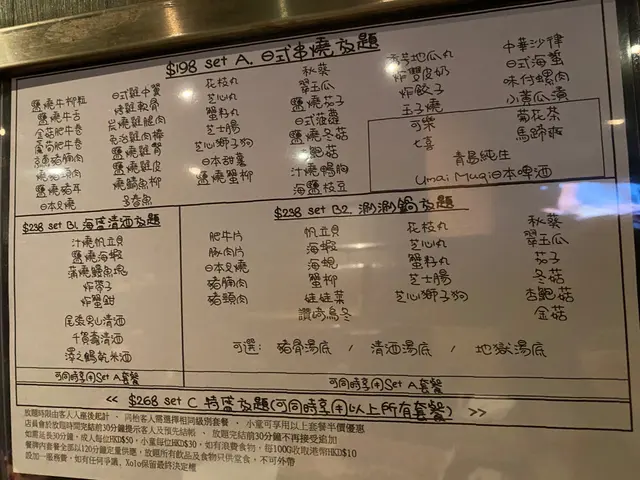 $198 set A. 日式串燒放題
鹽燒牛柳粒
鹽燒牛舌
金菇肥牛卷
豬頸肉
鹽燒豬耳
日本叉燒
日式雞中翼
燒雞軟骨
炭燒雞腿肉
免治雞肉棒
鹽燒雞腎
鹽燒雞皮
燒鯖魚柳
多春魚
花枝丸
芝心丸
蟹籽丸
芝士腸
芝心獅子狗
日本甜薯
鹽燒蟹柳
秋葵
翠玉瓜
鹽燒茄子
日式菠蘿
鹽燒冬菇
杏鮑菇
汁燒鴨胸
海鹽枝豆
香芋地瓜丸
炸豐皮奶
炸餃子
玉子燒
中華沙律
日式海蜇
味付螺肉
小青瓜漬
可樂
七喜
菊花茶
馬蹄爽
青島純生
Umai Mugi日本啤酒
$238 set B1. 海盛清酒放題
汁燒帆立貝
鹽燒海蝦
蒲燒鰻魚塊
炸帶子
炸蟹鉗
尾張男山清酒
千賀壽清酒
澤之鶴乾米酒
可同時享用Set A套餐
$238 set B2. 涮涮鍋放題
肥牛片
豚肉片
日本叉燒
豬腩肉
豬頸肉
帆立貝
海蝦
海蜆
蟹柳
娃娃菜
讚岐烏冬
花枝丸
芝心丸
蟹籽丸
芝士腸
芝心獅子狗
秋葵
翠玉瓜
茄子
冬菇
杏鮑菇
金菇
可選: 豬骨湯底 / 清酒湯底 / 地獄湯底
可同時享用Set A套餐
<< $268 set C 特盛放題(可同時享用以上所有套餐) >>
放題時限由客人入座後起計 . 同枱客人需選擇相同級別套餐 . 小童可享用以上套餐半價優惠
店員會於放題時間完結前30分鐘提示客人及預先結帳 . 放題完結前30分鐘不再接受追加
如需延長30分鐘, 成人每位HKD$50, 小童每位HKD$30, 如有浪費食物, 每100G收取港幣HKD$10
餐牌內套餐全部以120分鐘定量供應, 放題所有飲品及食物只供堂食, 不可外帶
設加一服務費, 如有任何爭議, Xolo保留最終決定權